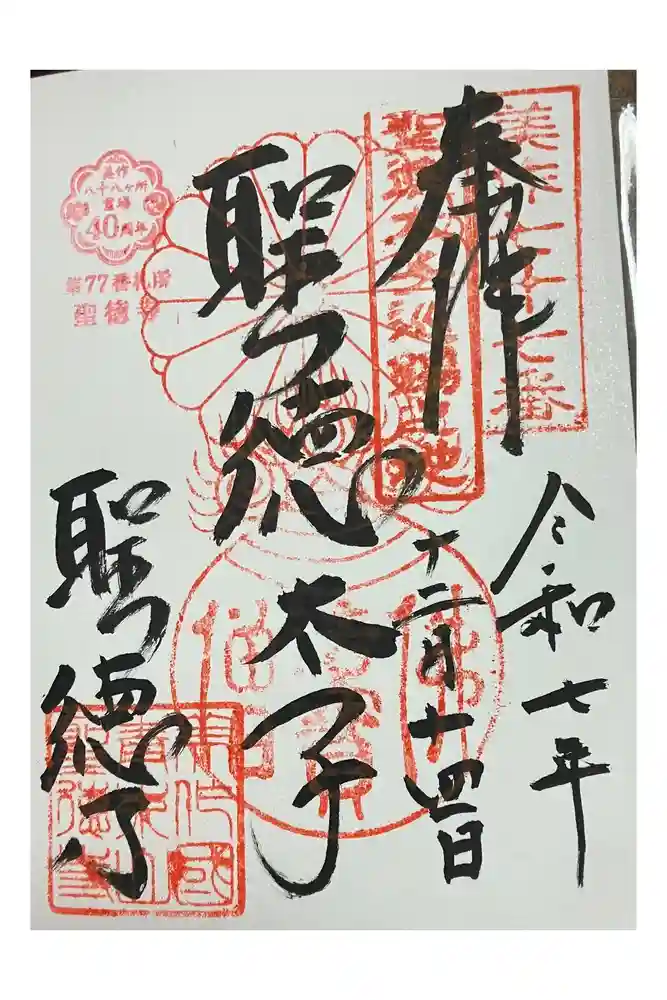 美作七十七番
奉拝
令和七年
十二月十四日
聖徳太子
美作
八十八ヶ所
霊場
40周年
第77番札所
聖徳寺
聖徳寺